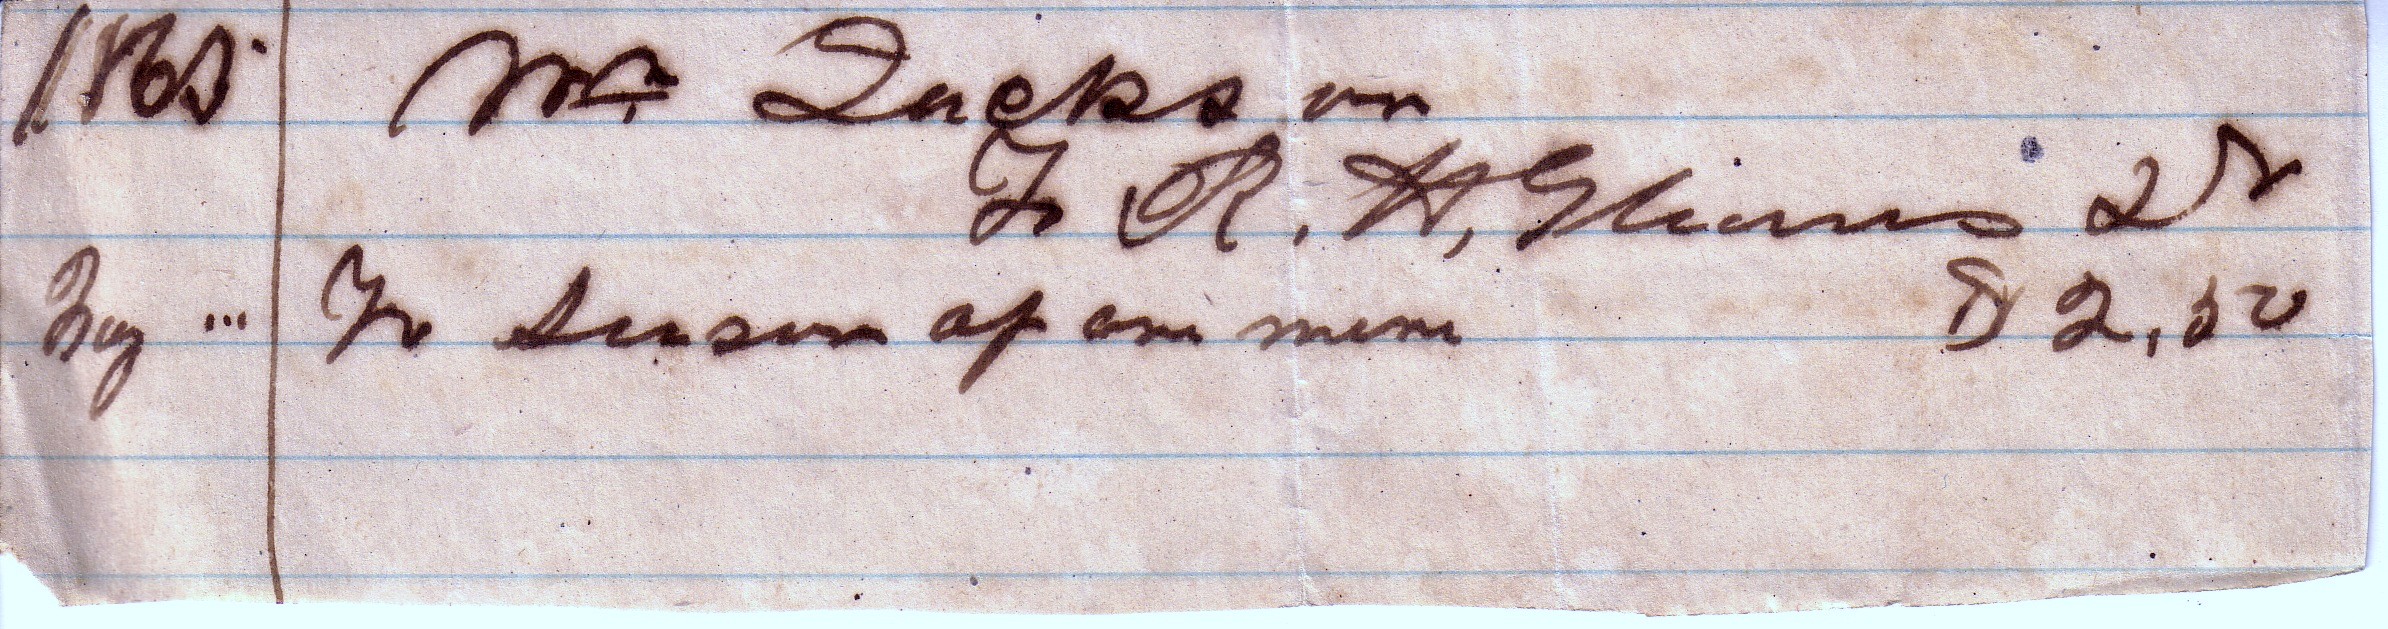 1865 Mr Jackson
To R. H, Glianus Dr
To Season of one mare $ 2,50